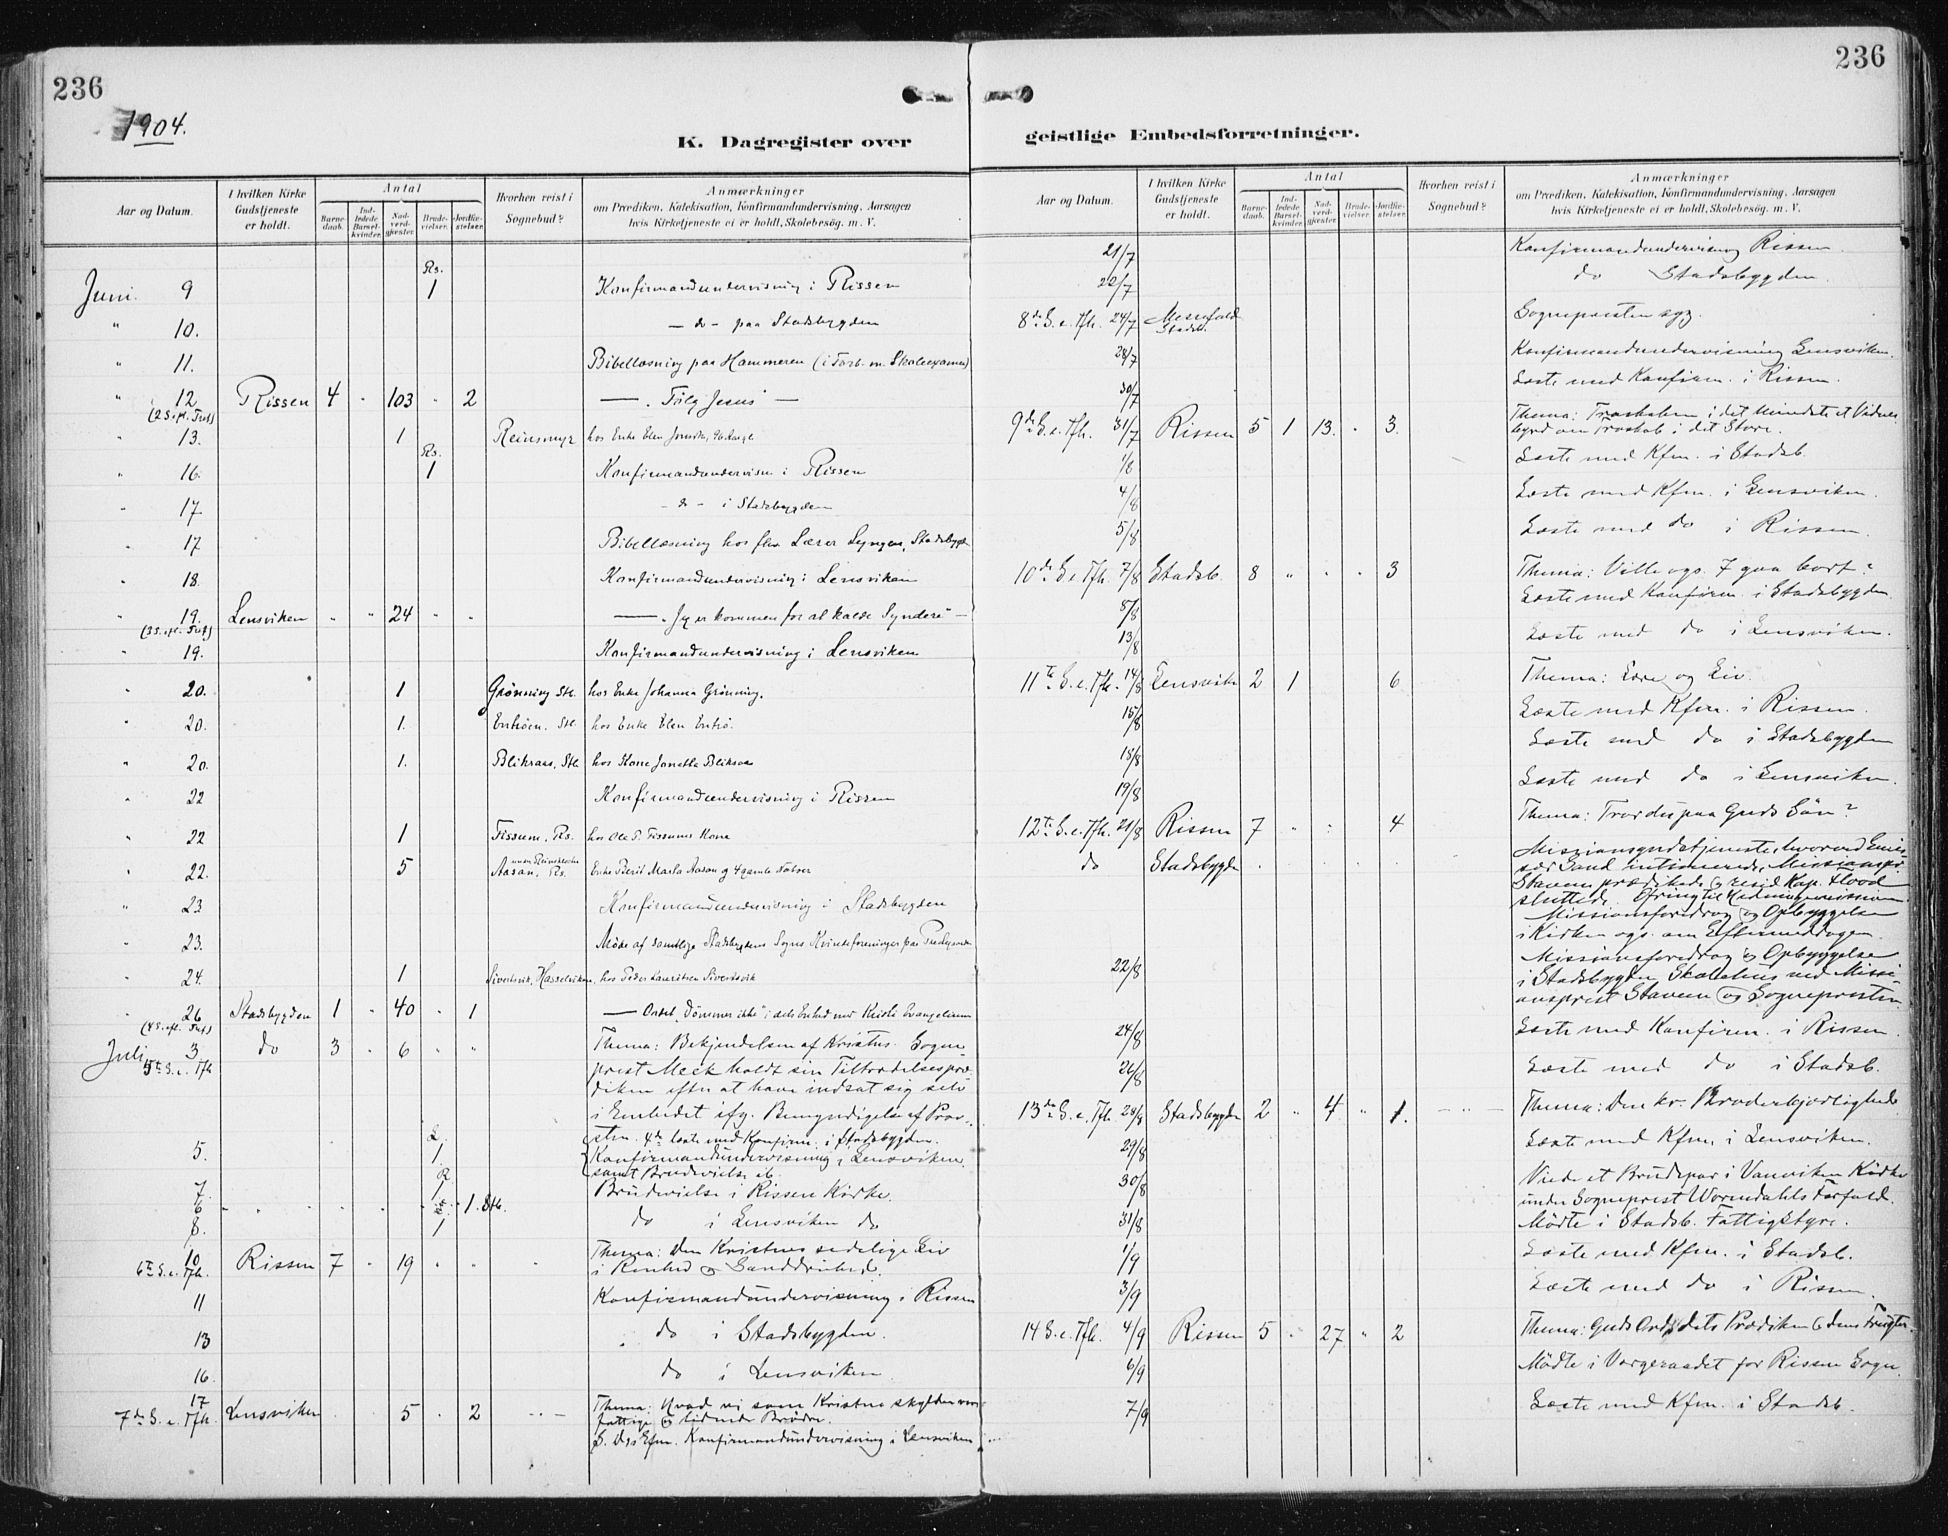 236
1904.
K. Dagregister over
Aar og Datum.
I hvilken Kirke Gudstjeneste er holdt.
Antal
Barnedaab.
Indledede Barselkvinder.
Nadverdgjester.
Brudevielser.
Jordfæstelser.
Hvorhen reist i Sognebud?
Anmærkninger
om Prædiken, Katekisation, Konfirmandundervisning, Aarsagen
hvis Kirketjeneste ei er holdt, Skolebesøg. m. V.
Juni 9 Rs. 1 Konfirmandundervisning i Rissen
" 10. — do - paa Stadsbygden
" 11. Bibellæsning paa Hammeren (i Forb. m. Skoleexamen)
" 12 Rissen 4 " 103 " 2 — "Følg Jesus" —
(2 S. ef. Tref)
" 13. 1 Reinsmyr hos Enke Elen
" 16. Rs. 1 Konfirmandundervisn. i Rissen
" 17 - do - i Stadsbygden
" 17 Bibellæsning hos Lærer Lyngen, Stadsbygd
" 18. Konfirmandundervisning i Lensviken
" 19. Lensviken " " 24 " " — "Jeg er kommen for at kalde Syndere" —
(3 S. eft. Tref)
" 19. Konfirmandundervisning i Lensviken
" 20. 1 Grønning Stb. hos Enke Johanna Grønning.
" 20. 1. Enhøen, Stb. hos Enke Elen Enhø.
" 20. 1. Blikraas, Stb. hos Kone Blikraas
" 22 Konfirmandundervisning i Rissen
" 22 1 Fissum, Rs. hos Ole P. Fissums Kone
" 22. 5 Aasan, Rs. Enke Berit Marta Aasan og 4 gamle
" 23 Konfirmandundervisning i Stadsbygden
" 23. Møde af samtlige Stadsbygdens Sogns Kvindeforeninger paa
" 24. 1 Hasselviken, hos Peder Lauritsen
" 26 Stadsbygden 1 " 40 " 1 — Ordet "Dømmer ikke" i dets Enhed med Kristi Evangelium
(4 S. eft. Tref)
Juli 3 do 3 " 6 " " Thema: Bekjendelsen af Kristus. Sogne-
5te S. e. Tfh prest Meck holdt sin Tiltrædelsespræ-
diken efter at have indsat sig selv
i Embedet ifg. Bemyndigelse af Prov-
sten. 4de læste med Konfirm. i Stadsbygden.
5. L. 1. Konfirmandundervisning i Lensviken
samt Brudevielse ib.
7. R 1 Brudevielse i Rissen Kirke.
6 " " " " " 1. Stb.
8. 1 do i Lensviken do
10 Rissen 7 " 19 " " Thema: Den Kristnes sedelige Liv
6te S. e. Tfh. i Renhed og Sanddruhed.
11 Konfirmandundervisning i Rissen
13 do i Stadsbygden.
16. do i Lensviken.
17 Lensviken 5 " 2 Thema: Hvad vi som Kristne skylder vore
7de S. e. Tfh. fattige og lidende Brødre.
Konfirmandundervisning i Lensviken
236
geistlige Embedsforretninger.
Aar og Datum.
I hvilken Kirke Gudstjeneste er holdt.
Antal
Barnedaab.
Indledede Barselkvinder.
Nadverdgjester.
Brudevielser.
Jordfæstelser.
Hvorhen reist i Sognebud?
Anmærkninger
om Prædiken, Katekisation, Konfirmandundervisning, Aarsagen
hvis Kirketjeneste ei er holdt, Skolebesøg. m. V.
21/7 Konfirmandundervisning Rissen
22/7 do Stadsbygden
8de S. e. Tfh. 24/7 Messefald Stadsb. Sognepresten syg.
28/7 Konfirmandundervisning Lensviken.
30/7 Læste med Konfirm. i Rissen.
9de S. e. Tfh. 31/7 Rissen 5 1 13. " 3. Thema: Troskaben i det Mindste et Vidnes-
byrd om Troskab i det Store.
1/8 Læste med Kfm. i Stadsb.
4/8 Læste med Kfm. i Lensviken.
5/8 Læste med do i Rissen.
10de S. e. Tfh. 7/8 Stadsb. 8 " " " 3 Thema: Ville ogs. I gaa bort?
8/8 Læste med Konfirm. i Stadsbygden
13/8 Læste med do i Lensviken.
11te S. e. Tfh. 14/8 Lensvik 2 1 6 Thema: Lære og Liv.
15/8 Læste med Kfm. i Rissen.
18/8 Læste med do i Stadsbygden
19/8 Læste med do i Lensviken.
12te S. e. Tfh. 21/8 Rissen 7 " " 4 Thema: Tror du paa Guds Søn?
do Stadsbygden Missionsgudstjeneste, hvorved Emis-
sær Sand intimerede, Missionspr.
Stavem prædikede og resid. Kap. Flood
sluttede. Ofring til Hedningemissionen.
Missionsforedrag og Opbyggelse
i Kirken ogs. om Eftermiddagen.
22/8 Missionsforedrag og Opbyggelse
i Stadsbygden Skolehus ved Missi-
onsprest Stavem og Sognepresten
24/8 Læste med Konfirm. i Rissen.
26/8 Læste med do i Stadsb.
13de S. e. Tfh. 28/8 Stadsbygden 2 " 4 " 1. Thema: Den kr. Broderkjærlighed
29/8 Læste med Kfm. i Lensviken.
30/8 Viede et Brudepar i Vanviken Kirke
under Sogneprest Wormdahls Forfald.
31/8 Mødte i Stadsb. Fattigstyre.
1/9 Læste med Kfm. i Stadsb.
3/9 Læste med do i Rissen.
14 S. e. Tfh. 4/9 Rissen 5 " 27 " 2 Thema: Guds Ord, dets Prædiken & dens Frugter.
6/9 Mødte i Vergeraadet for Rissen Sogn.
7/9 Læste med Kfm. i Stadsb.